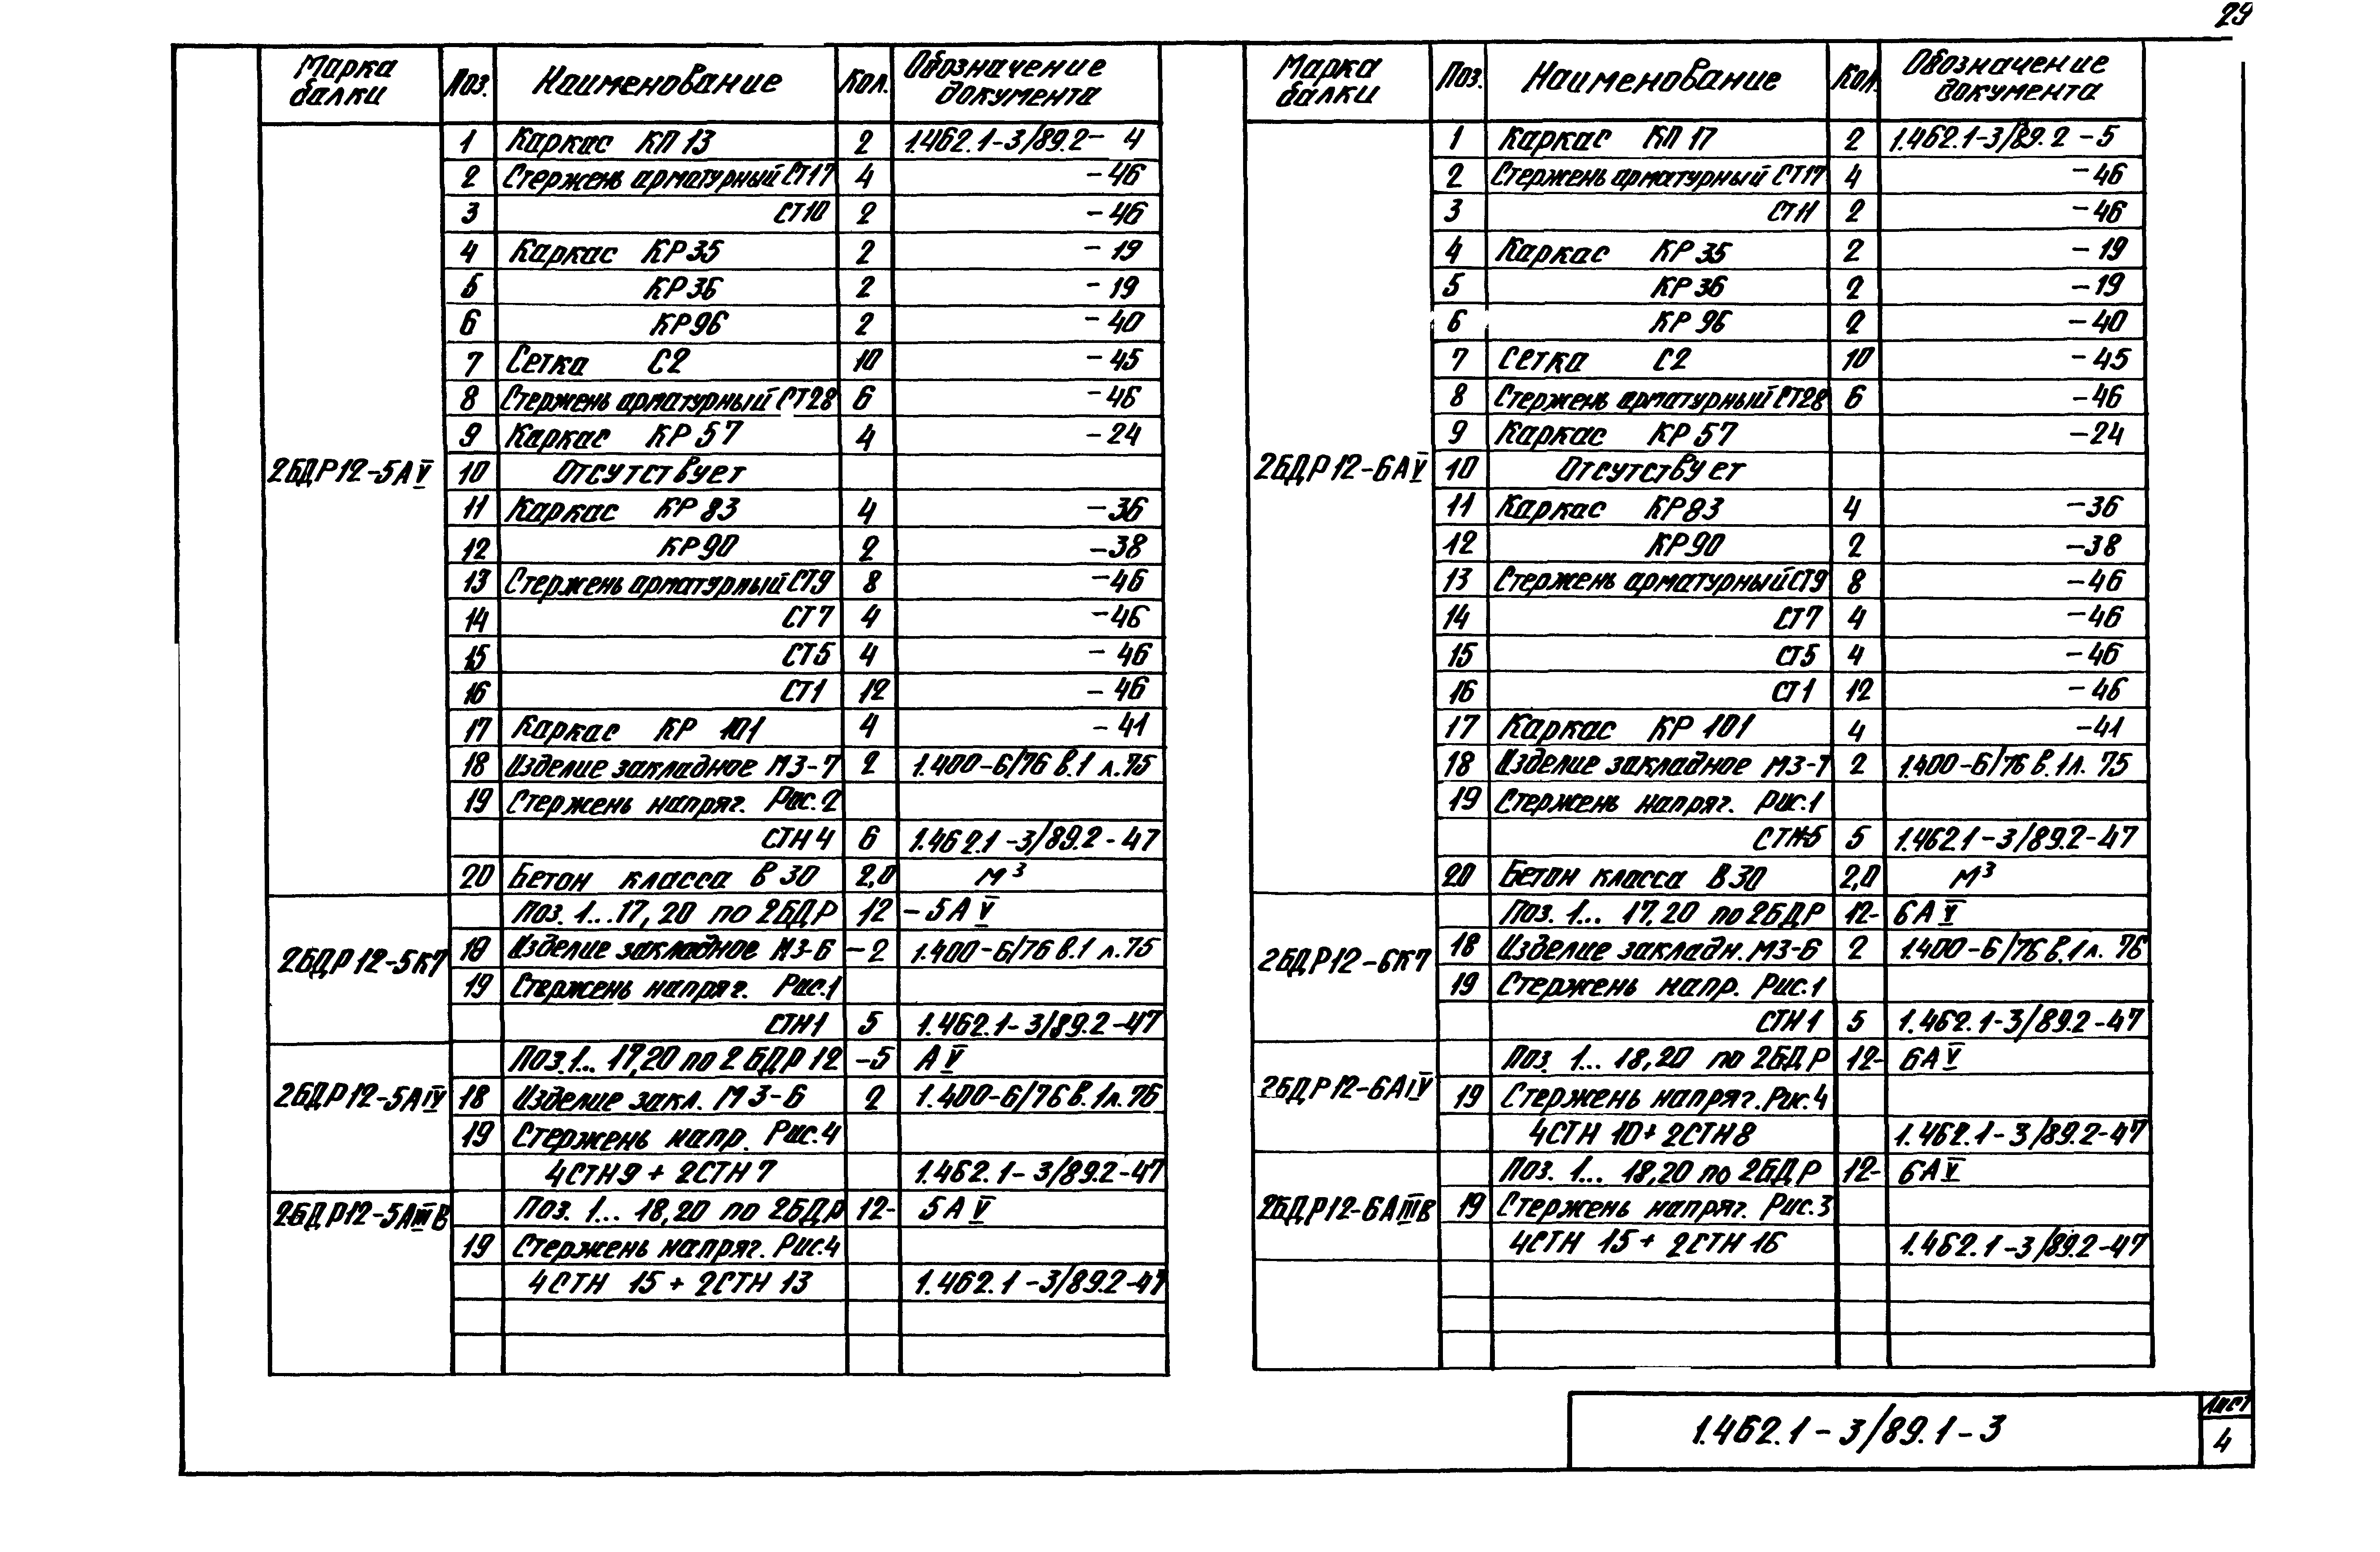 29
Марка балки Поз. Наименование Кол. Обозначение документа
1 Каркас КП 13 2 1.462.1-3/89.2- 4
2 Стержень арматурный СТ17 4 -46
3 СТ10 2 -46
4 Каркас КР35 2 -19
5 КР36 2 -19
6 КР96 2 -40
7 Сетка С2 10 -45
8 Стержень арматурный СТ28 6 -46
9 Каркас КР57 4 -24
2БДР12-5АV 10 Отсутствует
11 Каркас КР83 4 -36
12 КР90 2 -38
13 Стержень арматурный СТ9 8 -46
14 СТ7 4 -46
15 СТ5 4 -46
16 СТ1 12 -46
17 Каркас КР 101 4 -41
18 Изделие закладное МЗ-7 2 1.400-6/76 в.1 л.75
19 Стержень напряг. Рис.2
СТН4 6 1.462.1-3/89.2-47
20 Бетон класса В30 2,0 м³
Поз. 1...17, 20 по 2БДР 12 -5АV
2БДР12-5К7 18 Изделие закладное МЗ-6 -2 1.400-6/76 в.1 л.75
19 Стержень напряг. Рис.1
СТН1 5 1.462.1-3/89.2-47
Поз.1... 17,20 по 2БДР 12 -5 АV
2БДР12-5АIV 18 Изделие закл. МЗ-6 2 1.400-6/76 в.1л.76
19 Стержень напр. Рис.4
4СТН9 + 2СТН7 1.462.1-3/89.2-47
2БДР12-5АIIIВ Поз. 1... 18,20 по 2БДР 12- 5АV
19 Стержень напряг. Рис.4
4СТН 15 + 2СТН 13 1.462.1-3/89.2-47
Марка балки Поз. Наименование Кол. Обозначение документа
1 Каркас КП 17 2 1.462.1-3/89.2-5
2 Стержень арматурный СТ17 4 -46
3 СТ11 2 -46
4 Каркас КР35 2 -19
5 КР36 2 -19
6 КР96 2 -40
7 Сетка С2 10 -45
8 Стержень арматурный СТ28 6 -46
9 Каркас КР57 -24
2БДР12-6АV 10 Отсутствует
11 Каркас КР83 4 -36
12 КР90 2 -38
13 Стержень арматурный СТ9 8 -46
14 СТ7 4 -46
15 СТ5 4 -46
16 СТ1 12 -46
17 Каркас КР 101 4 -41
18 Изделие закладное МЗ-7 2 1.400-6/76 в.1л. 75
19 Стержень напряг. Рис.1
СТН5 5 1.462.1-3/89.2-47
20 Бетон класса В30 2,0 м³
Поз. 1... 17,20 по 2БДР 12- 6АV
2БДР12-6К7 18 Изделие закладн. МЗ-6 2 1.400-6/76 в.1л. 76
19 Стержень напр. Рис.1
СТН1 5 1.462.1-3/89.2-47
Поз. 1... 18,20 по 2БДР 12- 6АV
2БДР12-6АIV 19 Стержень напряг. Рис.4
4СТН 10+ 2СТН8 1.462.1-3/89.2-47
Поз. 1... 18,20 по 2БДР 12- 6АV
2БДР12-6АIIIВ 19 Стержень напряг. Рис.3
4СТН 15+ 2СТН 16 1.462.1-3/89.2-47
1.462.1-3/89.1-3
Лист
4